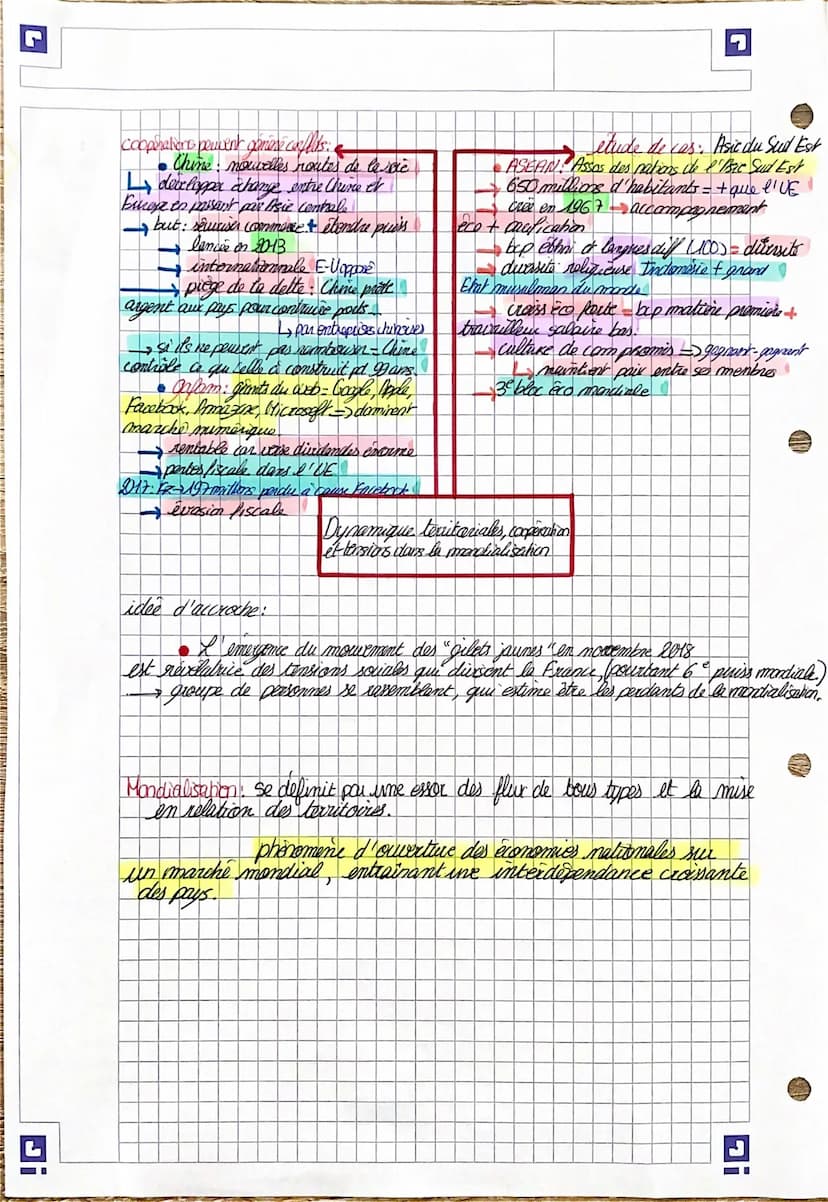 coopérations peuvent générer conflits:
• Chine: nouvelles routes de la soie
développer échange entre Chine et
Europe en passant par Asie centrale
→ but: sécuriser commerce + étendre puiss
→ lancée en 2013
→ internationnale E-U opposé
→ piège de la dette: Chine prête
argent aux pays pour contruire ports...
↳ par entreprises chinoises
→ si ils ne peuvent pas rembourser = Chine
contrôle ce qu'elle à construit pd 99 ans.
• Gafam: géants du web = Google, Apple,
Facebook, Amazone, Microsoft => dominent
marché numérique
→ rentable car verse dividendes énorme
→ pertes fiscale dans l'UE
2017: Fr → 197 millions perdu à cause Facebook
→ évasion fiscale
étude de cas: Asie du Sud Est
• ASEAN: Assos des nations de l'Asie Sud Est
→ 650 millions d'habitants = + que l'UE
→ créé en 1967 → accompagnement
éco + pacification
→ bcp ethni et langues diff (100) = diversité
→ diversité religieuse Indonésie + grand
Etat musulman du monde
→ croiss éco forte = bcp matière première +
travailleur salaire bas.
→ culture de compromis => gagnant-gagnant
↳ maintient paix entre ses membres
→ 3e bloc éco mondiale
Dynamique territoriales, coopération
et tensions dans la mondialisation
idée d'accroche:
• L'émergence du mouvement des "gilets jaunes" en novembre 2018
est révélatrice des tensions sociales qui divisent la France, (pourtant 6e puiss mondiale)
→ groupe de personnes se rassemblant, qui estime être les perdants de la mondialisation.
Mondialisation: se définit par une essor des flux de tous types et la mise
en relation des territoires.
phénomène d'ouverture des économies nationales sur
un marché mondial, entraînant une interdépendance croissante
des pays.